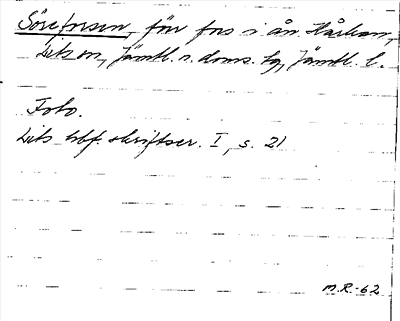 Söreforsen, för fors i ån Hårkan,
Lits sn, Jämtl. n. doms. hg, Jämtl. l.
Foto.
Lits hbf. skriftser. I, s. 21
M.R.-62